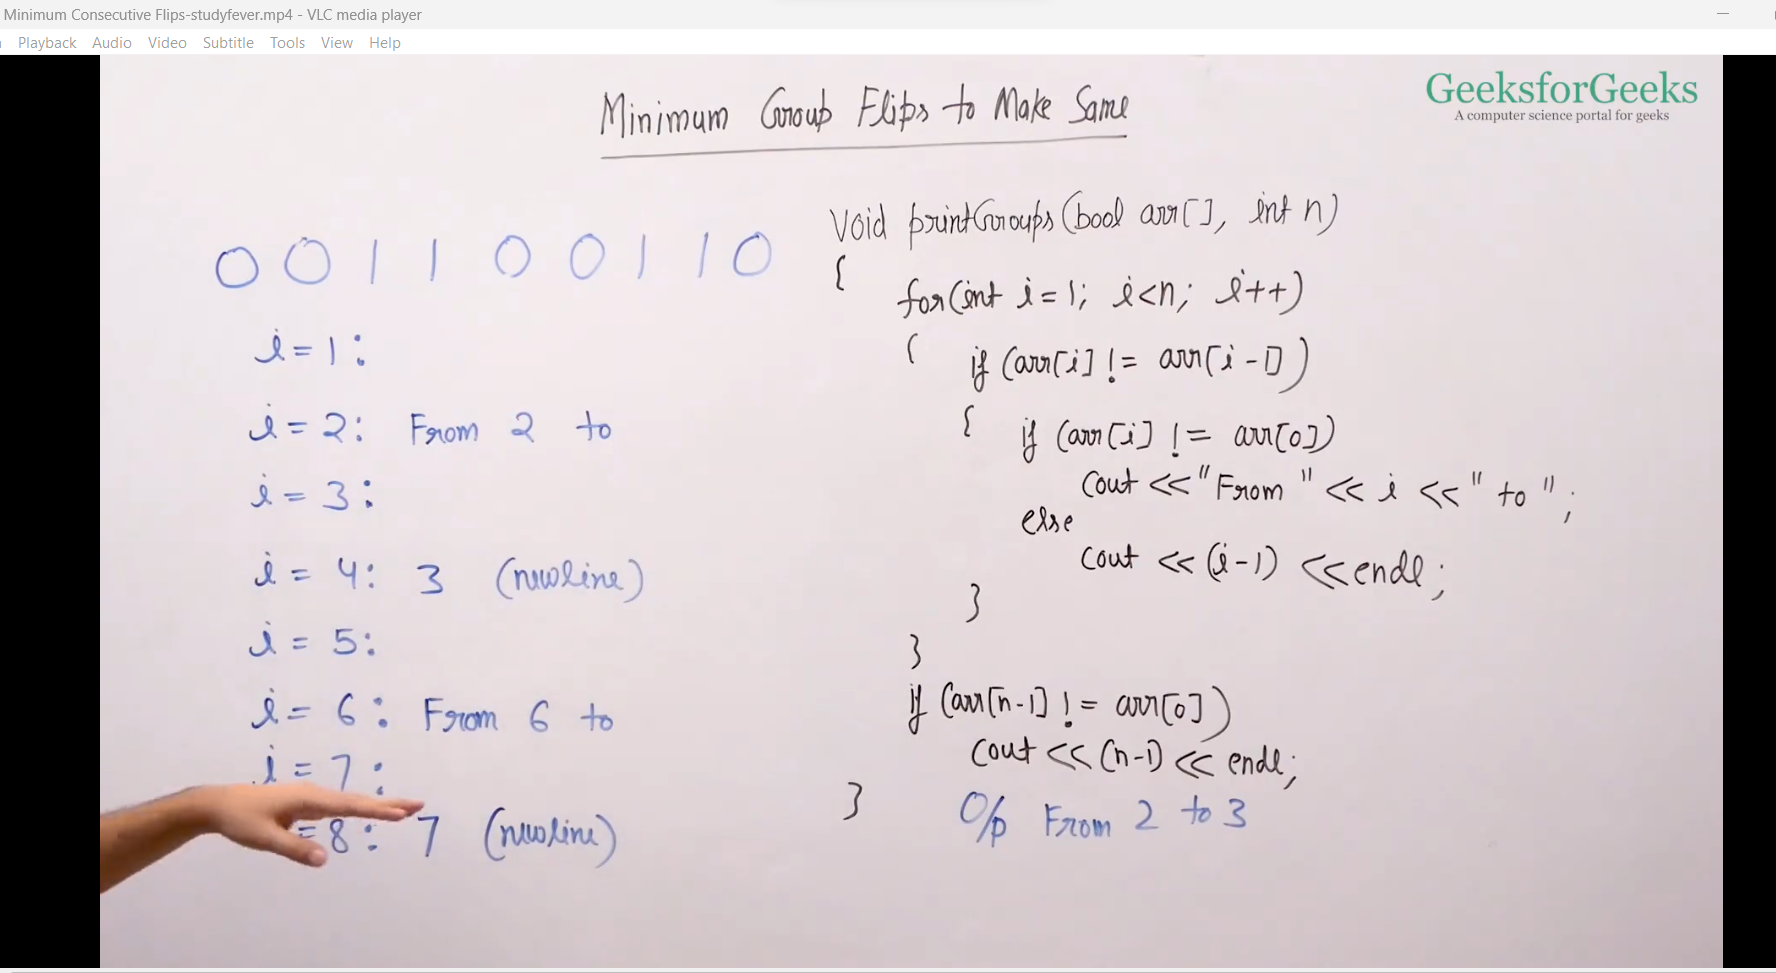 Minimum Consecutive Flips-studyfever.mp4 - VLC media player
Playback Audio Video Subtitle Tools View Help
GeeksforGeeks
A computer science portal for geeks
Minimum Group Flips to Make Same
0 0 1 1 0 0 1 1 0
i = 1 :
i = 2 : From 2 to
i = 3 :
i = 4 : 3 (newline)
i = 5 :
i = 6 : From 6 to
i = 7 :
= 8 : 7 (newline)
void printGroups(bool arr[], int n)
{
for(int i = 1; i<n; i++)
{ if (arr[i] != arr[i-1])
{ if (arr[i] != arr[0])
cout <<"From " << i <<" to ";
else
cout << (i-1) <<endl;
}
}
if (arr[n-1] != arr[0])
cout << (n-1) << endl;
}
O/p From 2 to 3